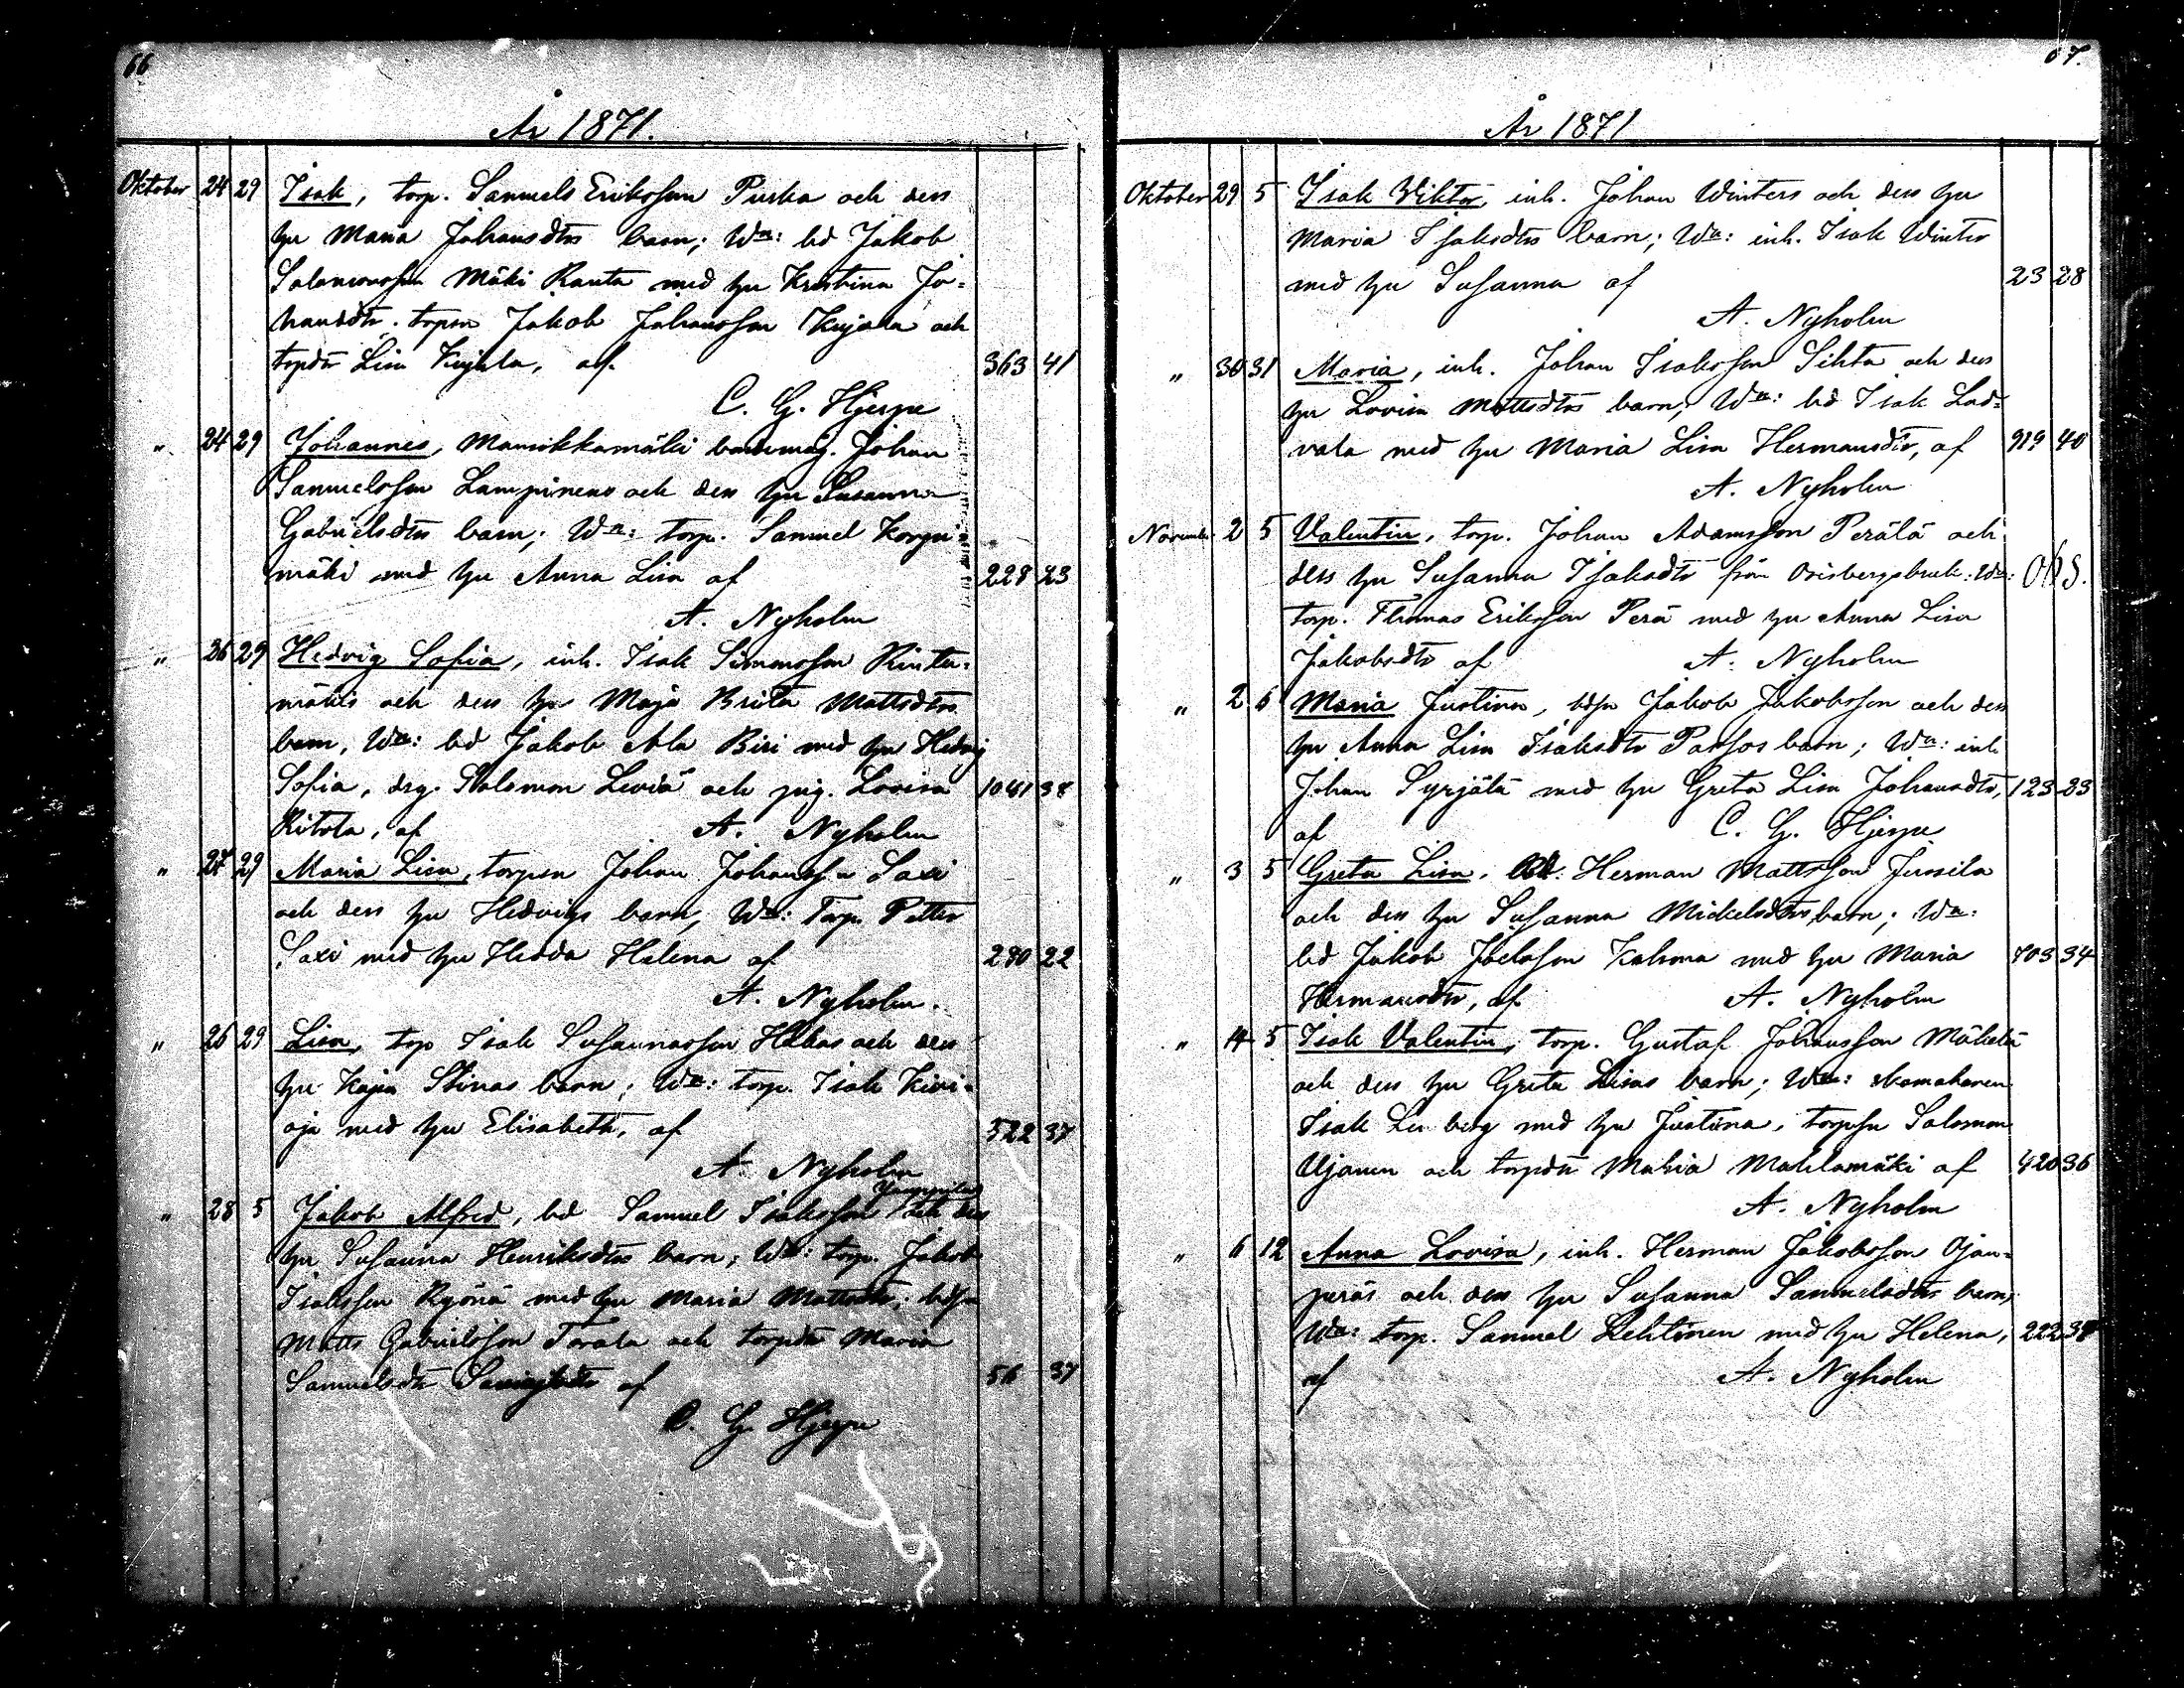 66
År 1871.
Oktober 24 29 Isak, torp. Samuels Eriksson Puska och dess
hu Maria Johansdtrs barn; Wn: bd Jakob
Salomonsson Mäki Ranta med hu Kristina Jo-
hansdtr. torpsn Jakob Johansson Kujala och
torpdr Lisa Kujala, af. 363 41
C. G. Hjerpe
" 24 29 Johannes, Mansikkamäki Johan
Samuelsson Lampinens och dess hu Susanna
Gabrielsdtrs barn; Wn: torp. Samuel Korpi
mäki med hu Anna Lisa af 228 23
A. Nyholm
" 26 29 Hedvig Sofia, inh. Isak Simonsson Rinta-
mäkis och dess hu Maja Brita Mattsdtrs
barn, Wn: bd Jakob Ala Biri med hu Hedvig
Sofia, drg. Salomon Leviä och pig. Lovisa 1041 38
Ritola, af A. Nyholm
" 27 29 Maria Lisa, torpsn Johan Johansson Saxi
och dess hu Hedvigs barn, Wn: Torp. Petter
Saxi med hu Hedda Helena af 290 22
A. Nyholm.
" 26 29 Lisa, torp Isak Susannasson och dess
hu Kajsa Stinas barn; Wn: torp. Isak Kivi-
oja med hu Elisabeth, af 522 37
A. Nyholm
" 28 5 Jakob Alfred, bd Samuel Isaksson och dess
hu Susanna Henriksdtrs barn; Wn: torp. Jakob
Isaksson Ryönä med hu Maria Mattsdtr; bdsn
Matts Gabrielsson Torala och torpdr Maria
Samuelsdtr af 56 37
C. G. Hjerpe
67.
År 1871
Oktober 29 5 Isak Viktor, inh. Johan Winters och dess hu
Maria Isaksdtrs barn; Wn: inh. Isak Winter
med hu Susanna af 23 28
A. Nyholm
" 30 31 Maria, inh. Johan Isaksson Sihto och dess
hu Lovisa Mattsdtrs barn; Wn: bd Isak Lad-
vala med hu Maria Lisa Hermansdtr, af 919 40
A. Nyholm
Novemb. 2 5 Valentin, torp. Johan Adamsson Perälä och
dess hu Susanna Isaksdtr från Orisbergsbruk: Wn: Obs.
torp. Thomas Eriksson Perä med hu Anna Lisa
Jakobsdtr af A. Nyholm
" 2 6 Maria Justina, bdsn Jakob Jakobsson och dess
hu Anna Lisa Isaksdtr barn; Wn: inh
Johan Syrjälä med hu Greta Lisa Johansdtr, 123 33
af C. G. Hjerpe
" 3 5 Greta Lisa, bd. Herman Mattsson Jussila
och dess hu Susanna Mickelsdtrs barn; Wn:
bd Jakob Joelsson Kahma med hu Maria 703 34
Hermansdtr, af A. Nyholm
" 14 5 Isak Valentin, torp. Gustaf Johansson Mäkelä
och dess hu Greta Lisas barn; Wn: skomakaren
Isak berg med hu Justina, torpsn Salomon
Ujanen och torpdr Maria Mahlamäki af 420 36
A. Nyholm
" 6 12 Anna Lovisa, inh. Herman Jakobsson Ojan-
peräs och dess hu Susanna Samuelsdtrs barn,
Wn: torp. Samuel Lehtinen med hu Helena, 222 38
af A. Nyholm